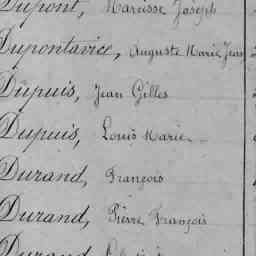 Dupont, Narcisse Joseph
Dupontavice, Auguste Marie Jean
Dupuis, Jean Gilles
Dupuis, Louis Marie
Durand, François
Durand, Pierre François
Durand,